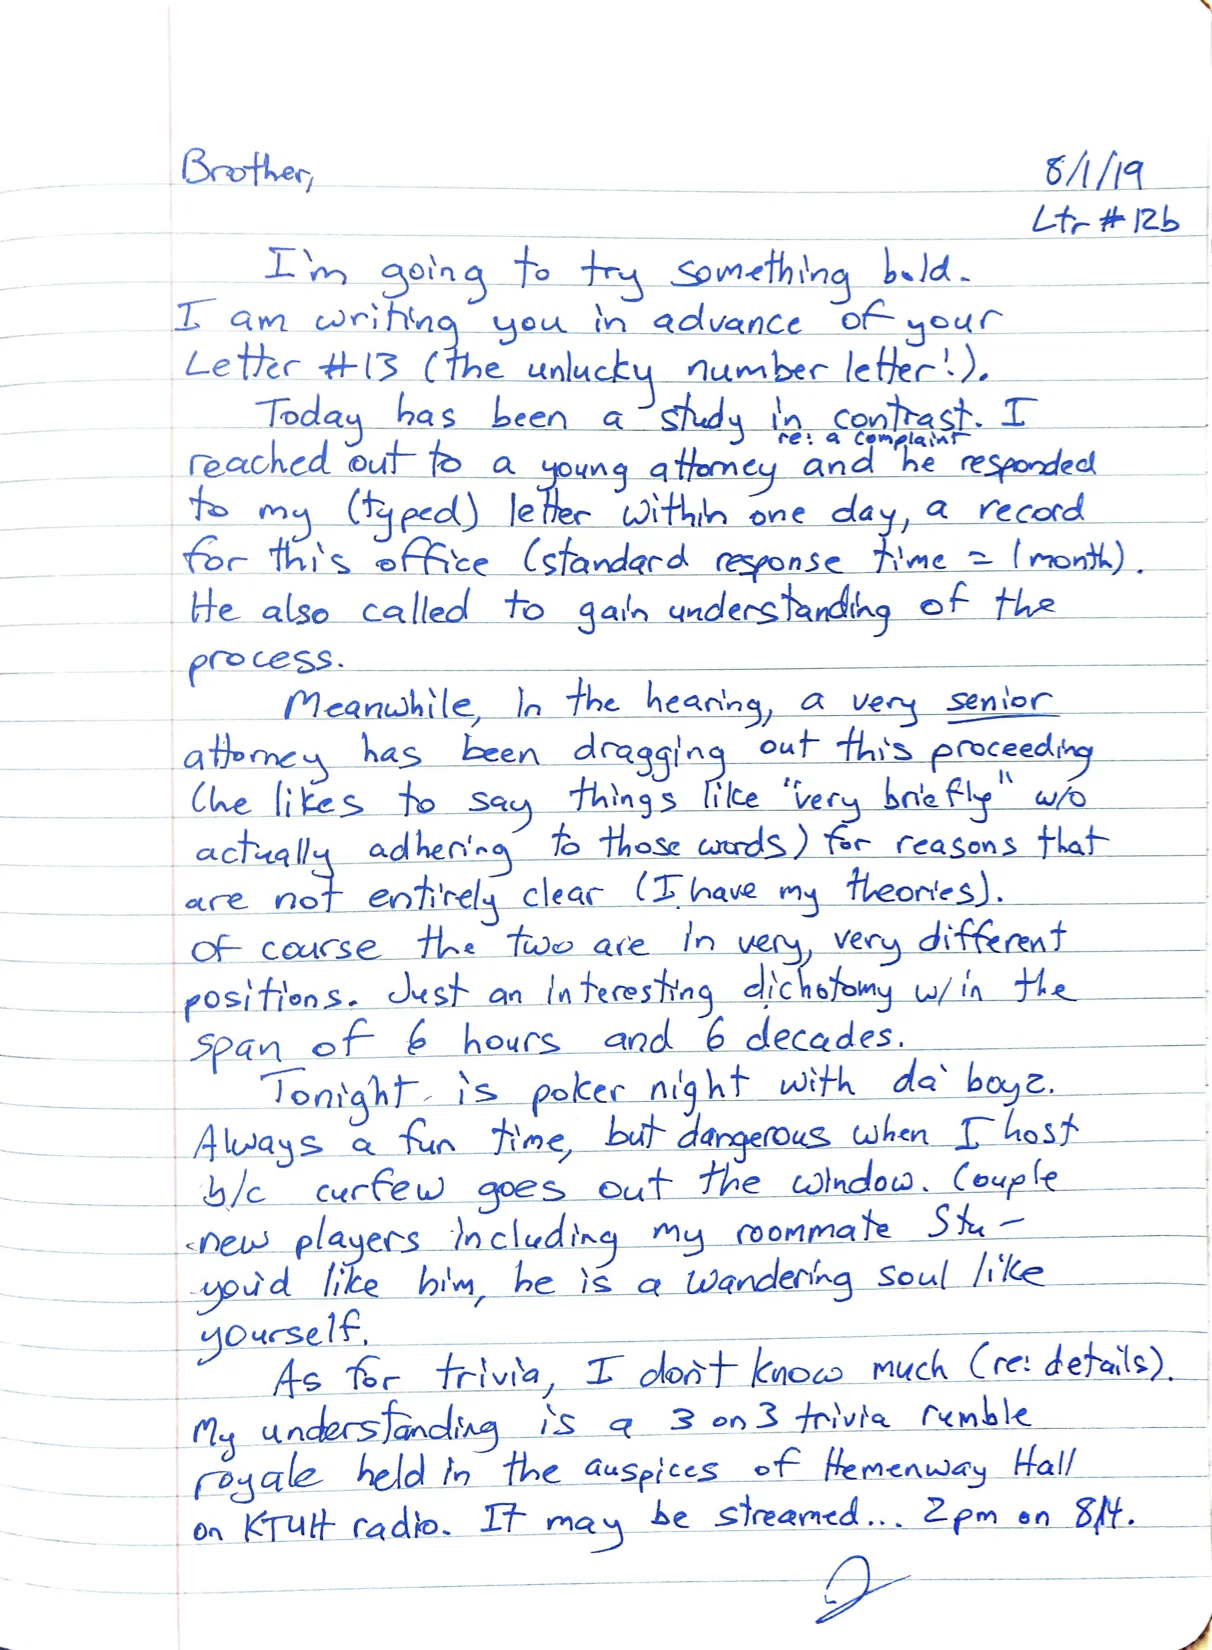 Brother,
8/1/19
Ltr # 12b
I'm going to try something bold.
I am writing you in advance of your
Letter #13 (the unlucky number letter!).
Today has been a study in contrast. I
re: a complaint
reached out to a young attorney and he responded
to my (typed) letter within one day, a record
for this office (standard response time = 1 month).
He also called to gain understanding of the
process.
Meanwhile, in the hearing, a very senior
attorney has been dragging out this proceeding
(he likes to say things like "very briefly" w/o
actually adhering to those words) for reasons that
are not entirely clear (I have my theories).
Of course the two are in very, very different
positions. Just an interesting dichotomy w/in the
span of 6 hours and 6 decades.
Tonight is poker night with da' boyz.
Always a fun time, but dangerous when I host
b/c curfew goes out the window. Couple
new players including my roommate Stu -
you'd like him, he is a wandering soul like
yourself.
As for trivia, I don't know much (re: details).
My understanding is a 3 on 3 trivia rumble
royale held in the auspices of Hemenway Hall
on KTUH radio. It may be streamed... 2pm on 8/4.